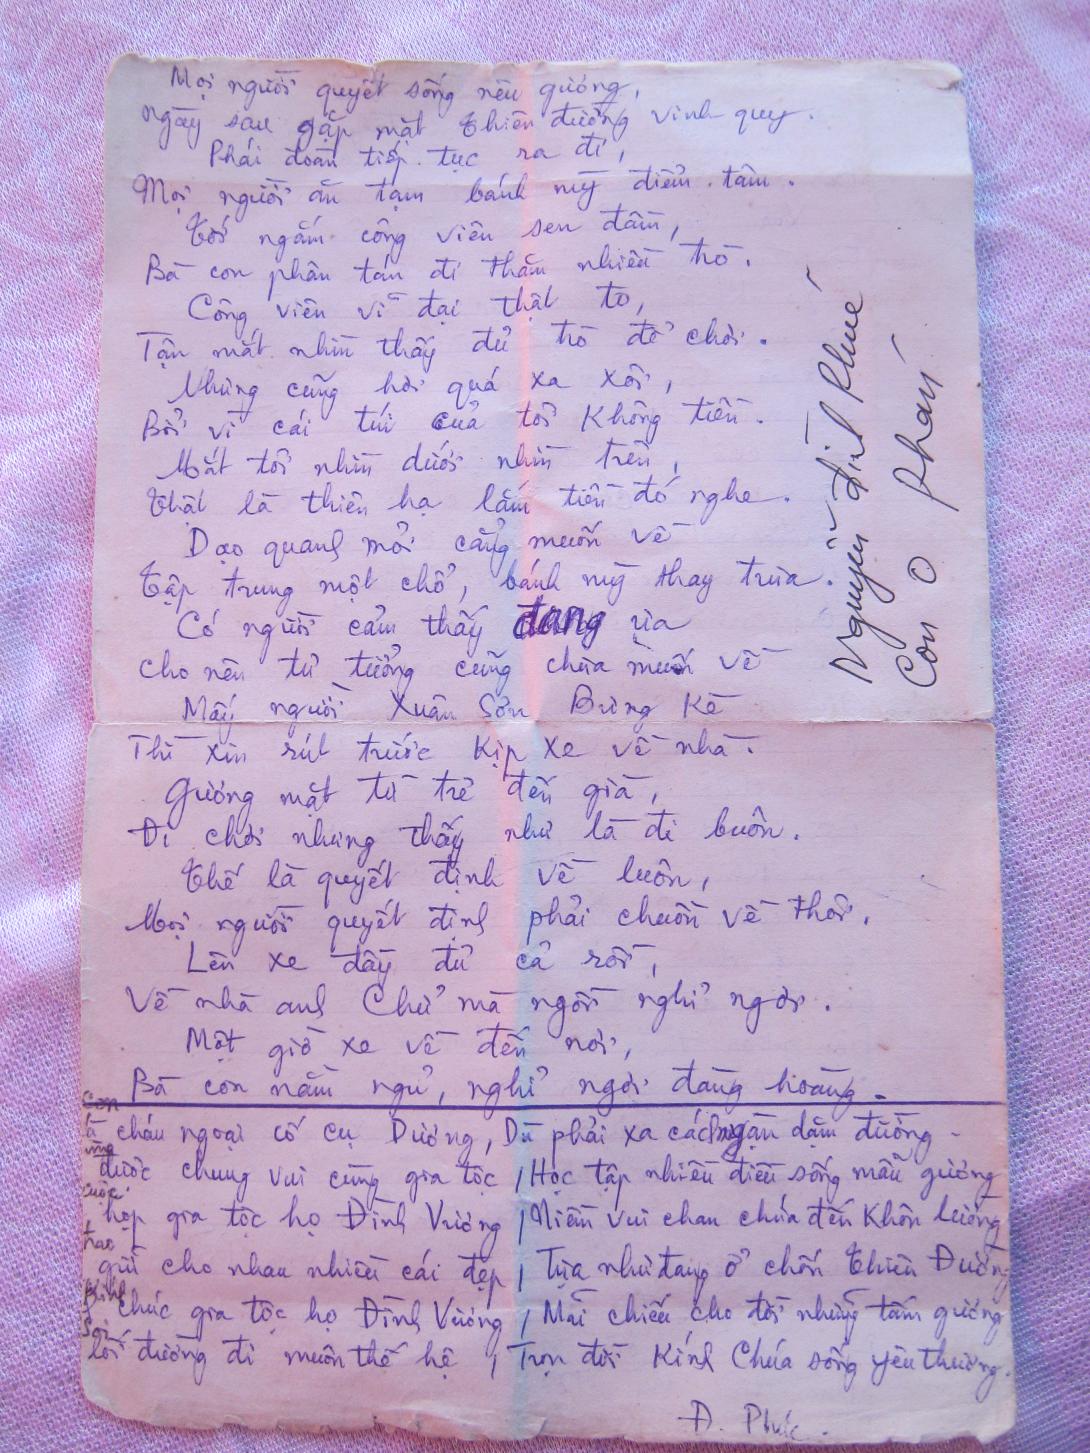 Mọi người quyết sống nêu gương,
Ngày sau gặp mặt thiên đường vinh quy.
Phái đoàn tiếp tục ra đi,
Mọi người ăn tạm bánh mỹ điểm tâm.
Tới ngắm công viên sen đầm,
Bà con phân tán đi thăm nhiều trò.
Công viên vĩ đại thật to,
Tận mắt nhìn thấy đủ trò để chơi.
Nhưng cũng hơi quá xa xôi,
Bởi vì cái túi của tôi không tiền.
Mắt tôi nhìn dưới nhìn trên,
Thật là thiên hạ lắm tiền đó nghe.
Dạo quanh mỏi cẳng muốn về
Tập trung một chổ, bánh mỹ thay trưa.
Có người cảm thấy đang vừa
cho nên tư tưởng cũng chưa muốn về
Mấy người Xuân Sơn Bưng Kè
Thì xin rút trước kịp xe về nhà.
Gương mặt từ trẻ đến già,
Đi chơi nhưng thấy như là đi buôn.
Thế là quyết định về luôn,
Mọi người quyết định phải chuồn về thôi.
Lên xe đầy đủ cả rồi,
Về nhà anh Chử mà ngồi nghỉ ngơi.
Một giờ xe về đến nơi,
Bà con nằm ngủ, nghỉ ngơi đàng hoàng.
Nguyễn đình Phué
Con O Phán
cháu ngoại cố cụ Dương, Dù phải xa cách ngàn dặm đường
được chung vui cùng gia tộc, Học tập nhiều điều sống mẫu gương
họp gia tộc họ Đình Vương, Niềm vui chan chứa đến khôn lường
gửi cho nhau nhiều cái đẹp, Tựa như đang ở chốn Thiên Đường
chúc gia tộc họ Đình Vương, Mãi chiếu cho đời những tấm gương
lối đường đi muôn thế hệ, Trọn đời Kính Chúa sống yêu thương.
Đ. Phúc.